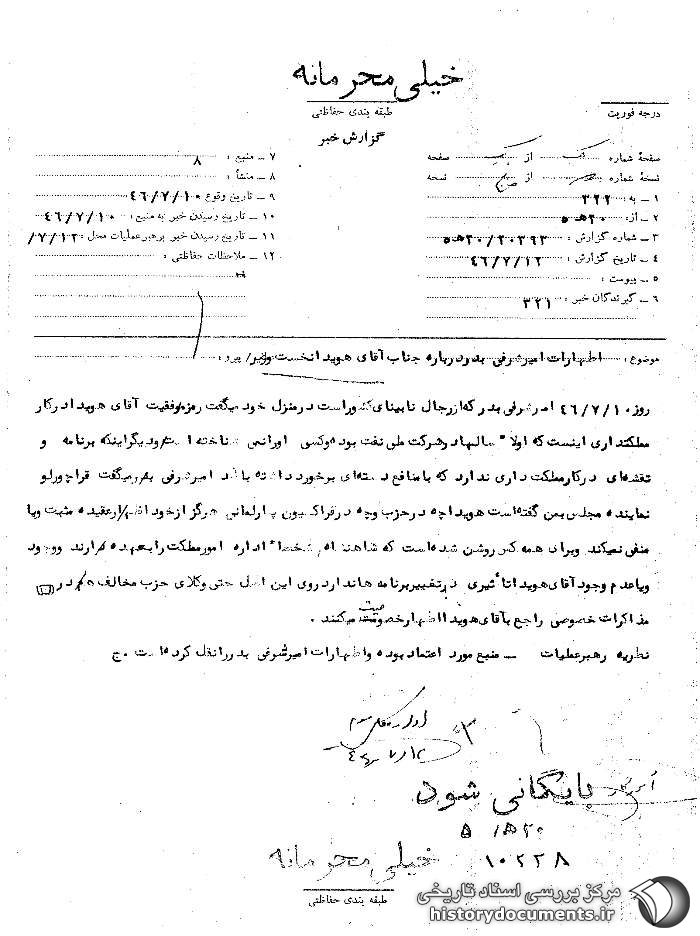 خیلی محرمانه
طبقه بندی حفاظتی
درجه فوریت
گزارش خبر
صفحهٔ شماره یک از یک صفحه
نسخهٔ شماره از نسخه
۱ ــ به: ۳۲۲
۲ ــ از: ۲۰هـ۵
۳ ــ شماره گزارش: ۲۰۳۹۳/۲۰هـ۵
۴ ــ تاریخ گزارش: ۴۶/۷/۱۲
۵ ــ پیوست:
۶ ــ گیرندگان خبر: ۳۲۱
۷ ــ منبع: ۸
۸ ــ منشأ:
۹ ــ تاریخ وقوع ۴۶/۷/۱۰
۱۰ ــ تاریخ رسیدن خبر به منبع: ۴۶/۷/۱۰
۱۱ ــ تاریخ رسیدن خبر برهبر عملیات محل: /۷/۱۲
۱۲ ــ ملاحظات حفاظتی:
موضوع: اظهارات امیرشرفی بدر درباره جناب آقای هویدا نخست وزیر / پیرو:
روز ۴۶/۷/۱۰ امیرشرفی بدر که از رجال نابینای کشور است در منزل خود میگفت رمز موفقیت آقای هویدا در کار
مملکتداری اینست که اولا" سالها در شرکت ملی نفت بوده و کسی او را نمی شناخته است و دیگر اینکه برنامه و
نقشه‌ای در کار مملکت داری ندارد که با منافع دسته‌ای برخورد داشته باشد امیرشرفی بدر میگفت قراچورلو
نماینده مجلس بمن گفته است هویدا چه در حزب و چه در فراکسیون پارلمانی هرگز از خود اظهار عقیده مثبت ویا
منفی نمیکند و برای همه کس روشن شده است که شاهنشاه شخصا" اداره امور مملکت را بعهده دارند و وجود
ویا عدم وجود آقای هویدا تأثیری در تغییر برنامه ها ندارد روی این اصل حتی وکلای حزب مخالف هم در
مذاکرات خصوصی راجع بآقای هویدا اظهار خصومت میکنند .
نظریه رهبر عملیات ــ منبع مورد اعتماد بوده و اظهارات امیرشرفی بدر را نقل کرده است . ج
بایگانی شود
۲۰هـ ۵
۱۰۲۲۸
خیلی محرمانه
طبقه بندی حفاظتی
مرکز بررسی اسناد تاریخی
historydocuments.ir